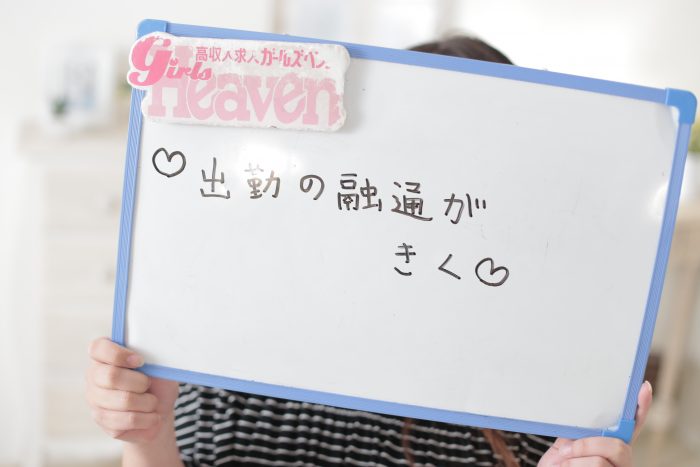 高収入求人ガールズヘブン
Girls
Heaven
♡出勤の融通が
きく♡